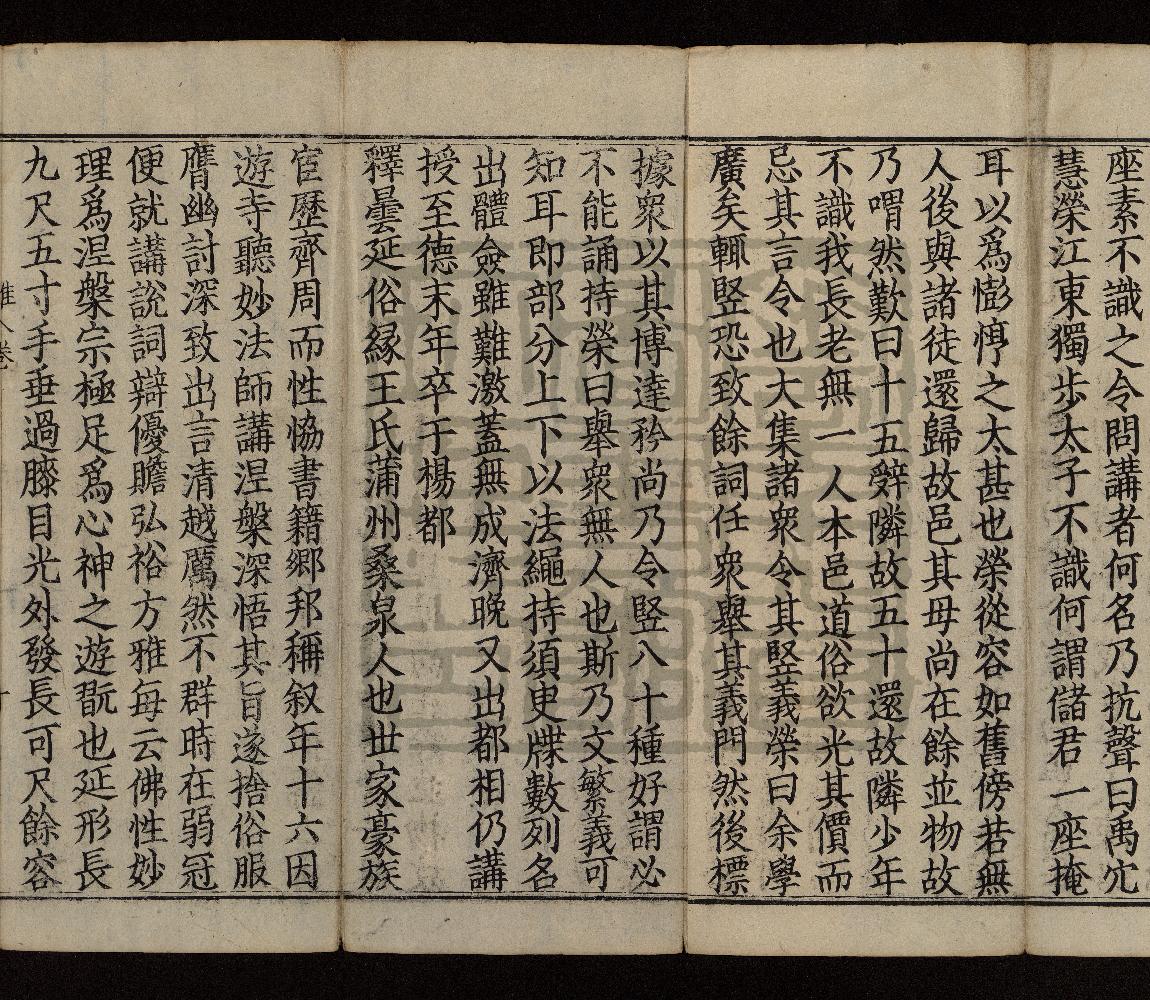 座素不識之令問講者何名乃抗聲曰禹穴
慧榮江東獨步太子不識何謂儲君一座掩
耳以爲憉悙之太甚也榮從容如舊傍若無
人後與諸徒還歸故邑其母尚在餘並物故
乃喟然歎曰十五辝隣故五十還故隣少年
不識我長老無一人本邑道俗欲光其價而
忌其言令也大集諸衆令其竪義榮曰余學
廣矣輒竪恐致餘詞任衆舉其義門然後標
據衆以其博達矜尚乃令竪八十種好謂必
不能誦持榮曰舉衆無人也斯乃文繁義可
知耳即部分上下以法繩持須臾牒數列名
出體僉雖難激蓋無成濟晚又出都相仍講
授至德末年卒于楊都
釋曇延俗緣王氏蒲州桑泉人也世家豪族
宦歷齊周而性恊書籍鄉邦稱叙年十六因
遊寺聽妙法師講涅槃深悟其旨遂捨俗服
膺幽討深致出言清越厲然不群時在弱冠
便就講說詞辯優贍弘裕方雅每云佛性妙
理爲涅槃宗極足爲心神之遊翫也延形長
九尺五寸手垂過膝目光外發長可尺餘容